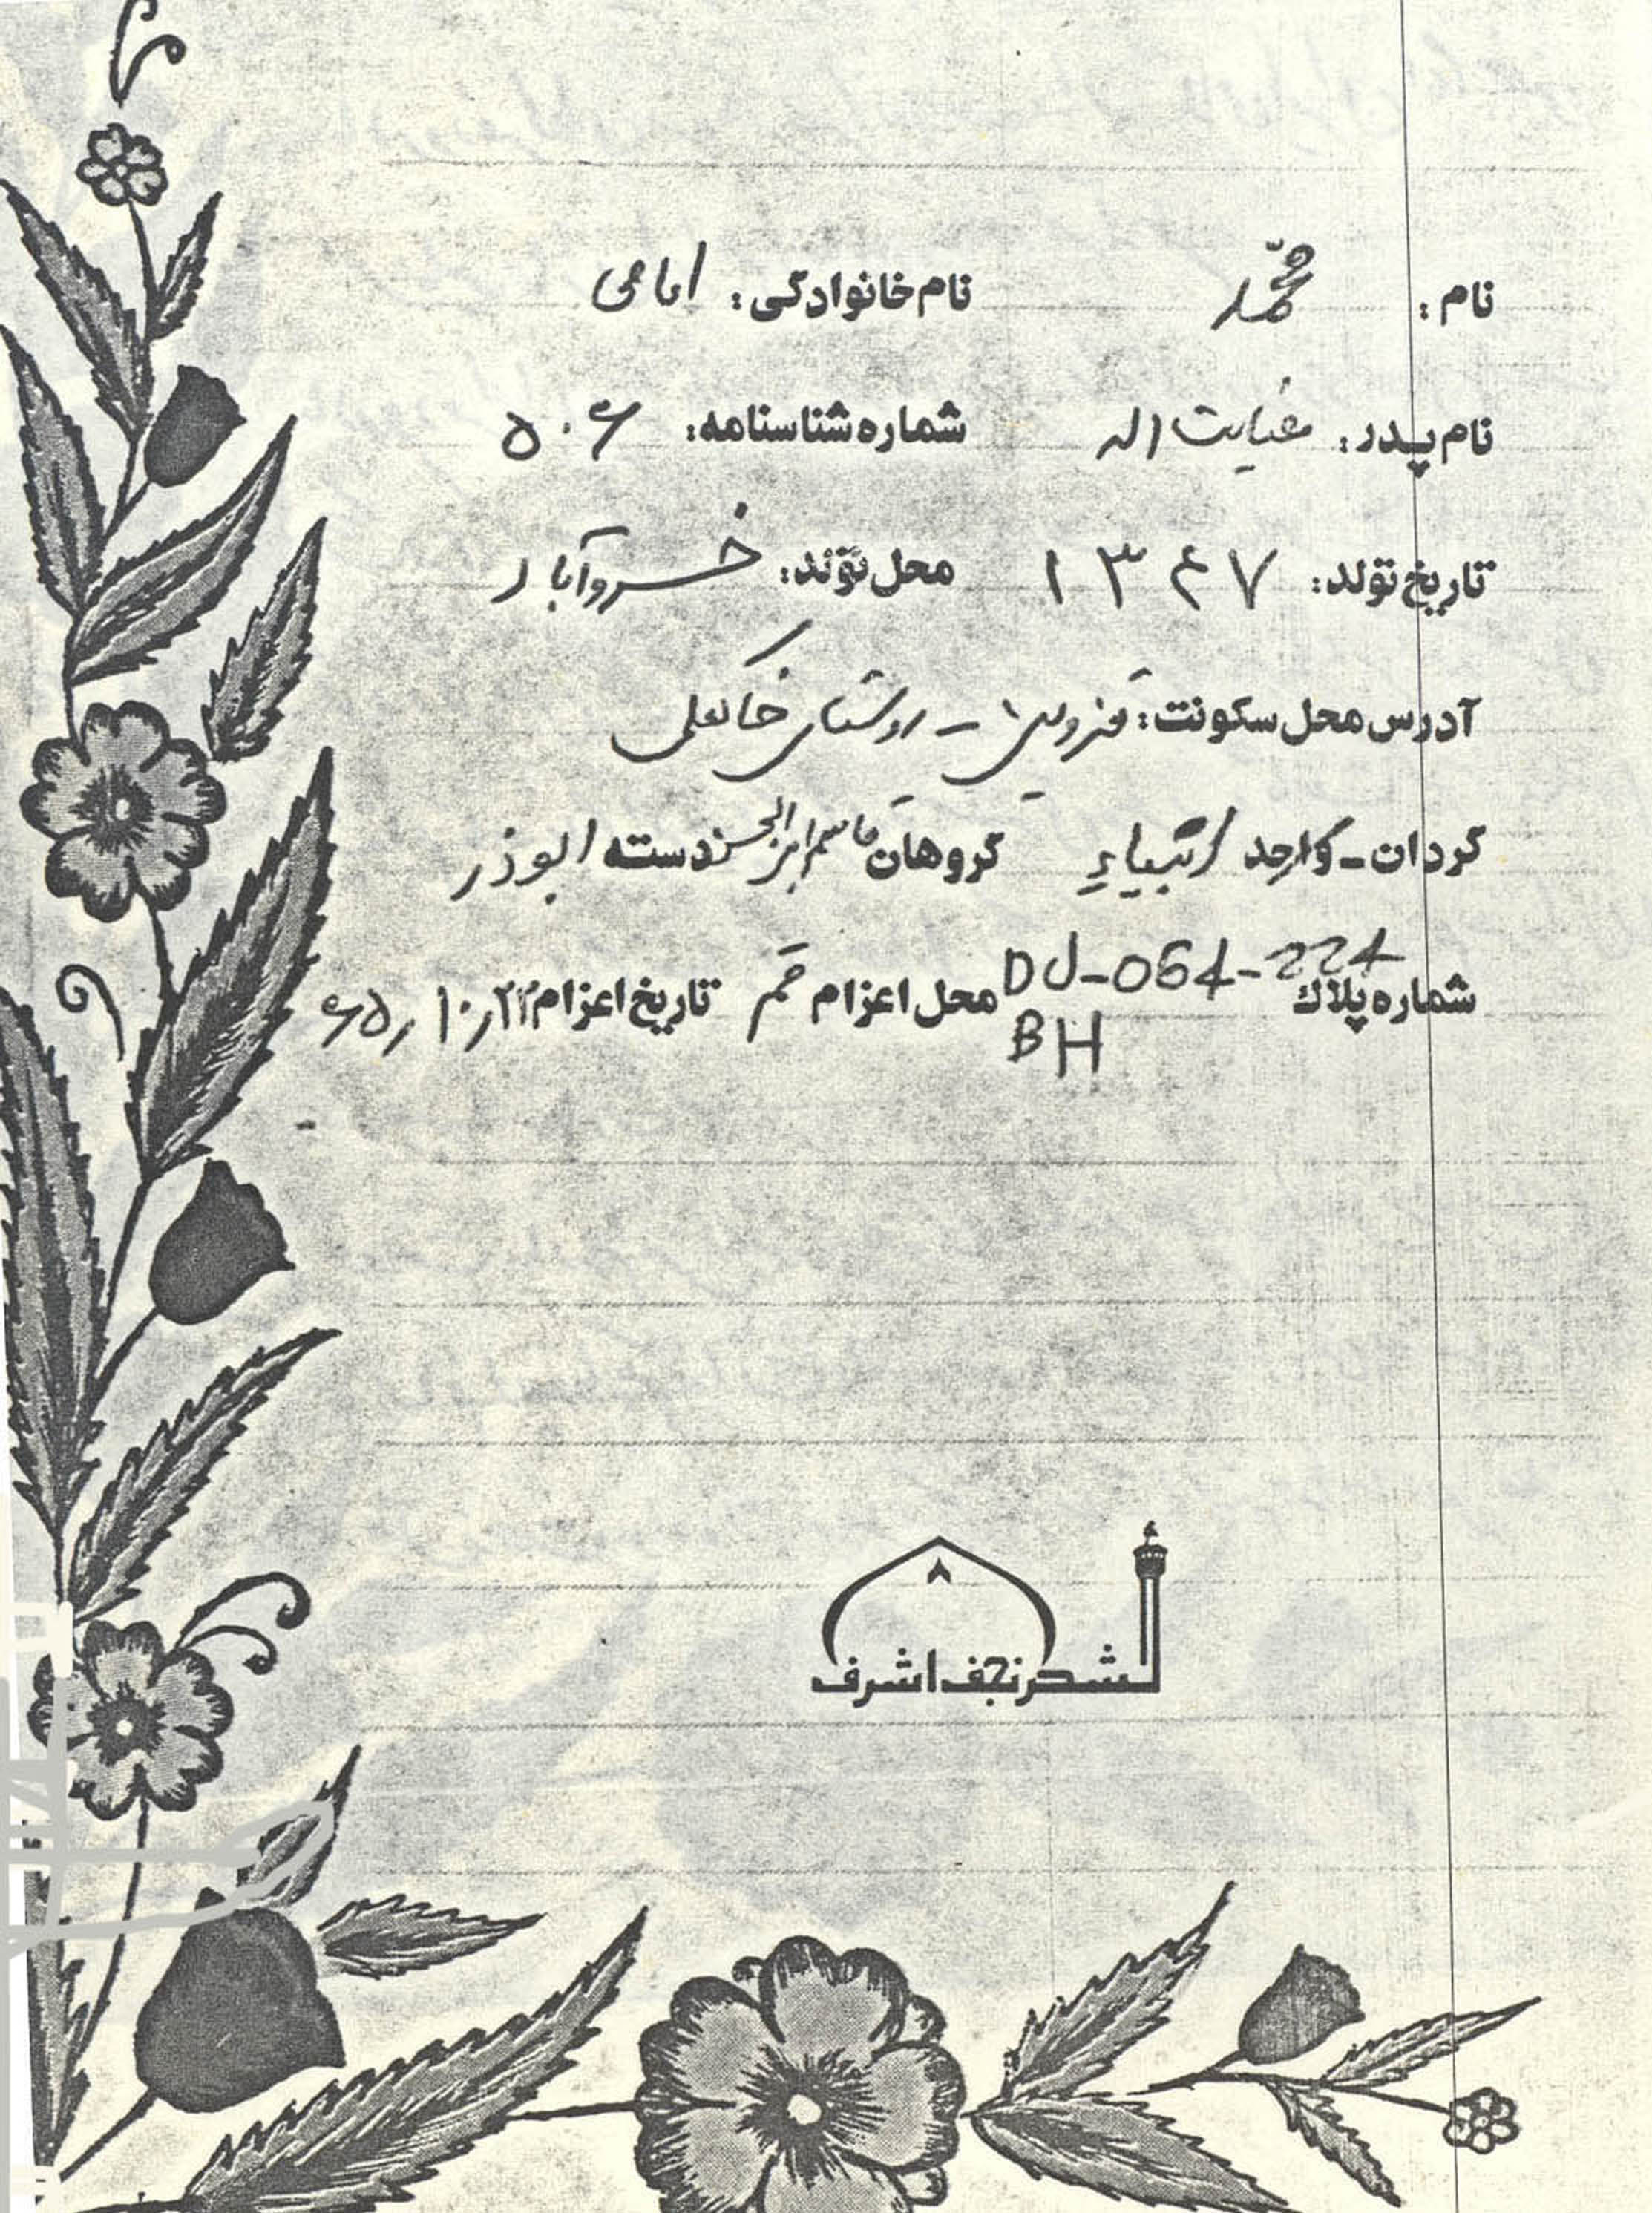 نام : محمّد نام خانوادگی : امامی
نام پدر : عنایت اله شماره شناسنامه : ۵۰۶
تاریخ تولد : ۱۳۴۷ محل تولد : خسروآباد
آدرس محل سکونت : قزوین - روستای خاکعلی
گردان - واحد انبیاء گروهان قاسم ابن الحسن دسته ابوذر
شماره پلاک DJ-064-224 BH محل اعزام قم تاریخ اعزام ۶۵٫۱۰٫۲۳
۸
لشکر نجف اشرف